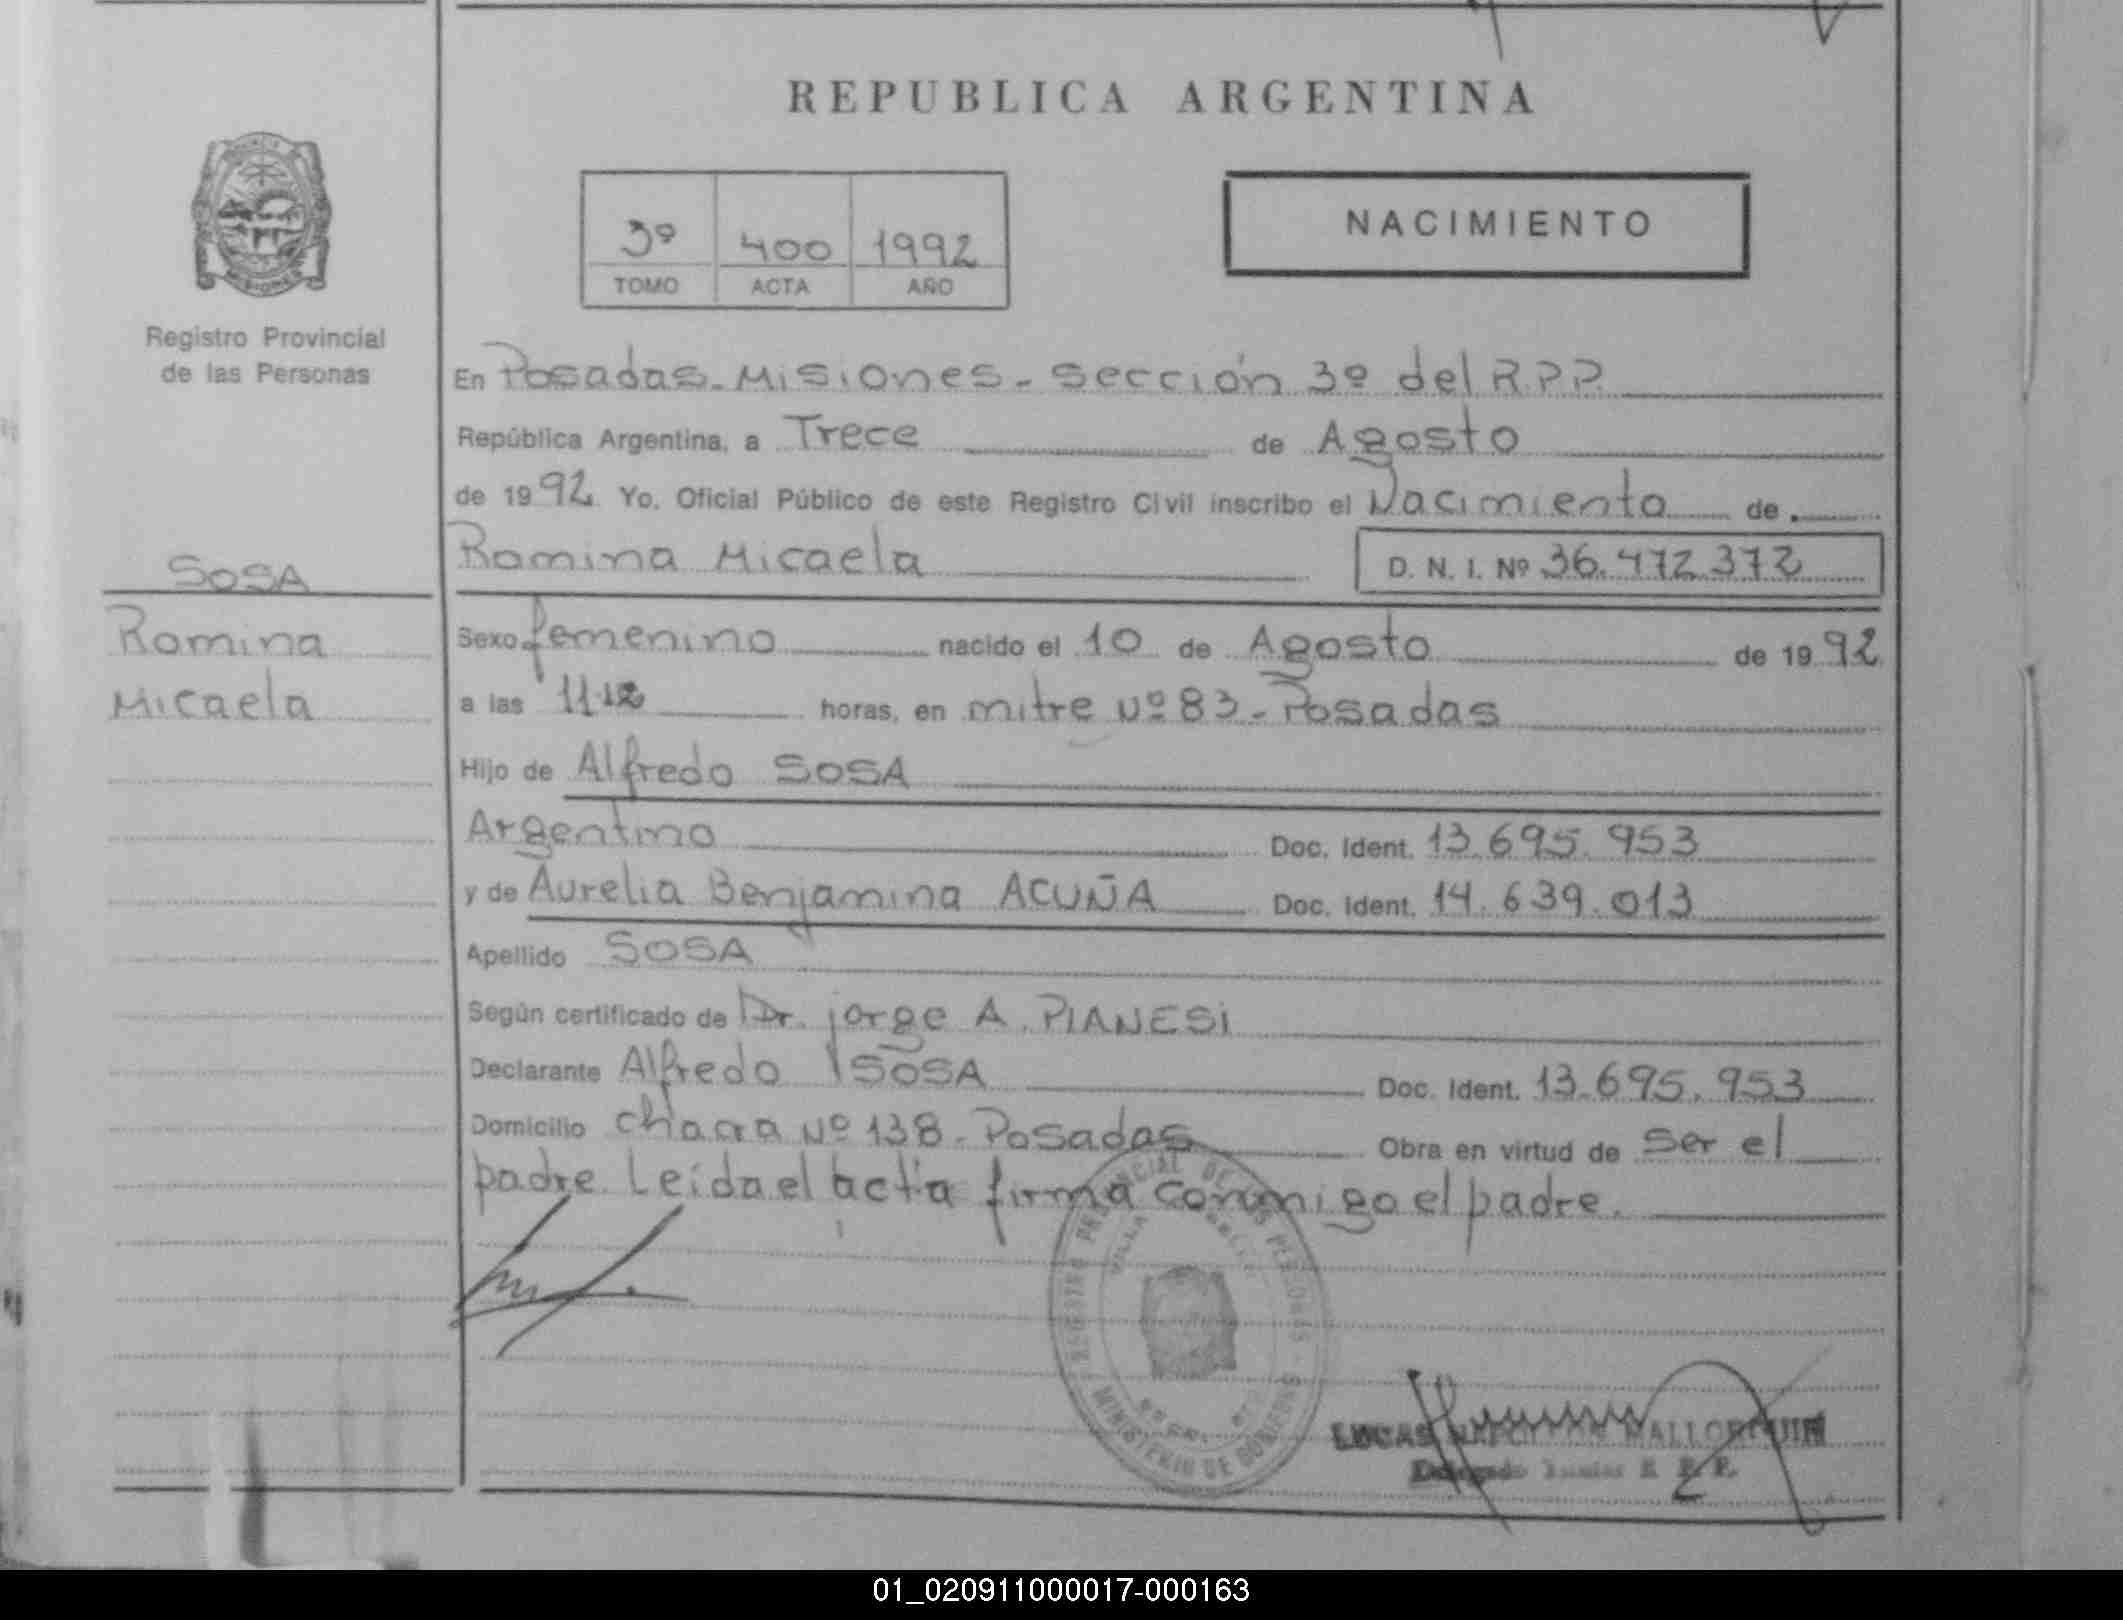 REPUBLICA ARGENTINA
3º 400 1992
TOMO ACTA AÑO
NACIMIENTO
Registro Provincial
de las Personas
En Posadas-Misiones-sección 3º del R.P.P.
República Argentina, a Trece de Agosto
de 1992 Yo, Oficial Público de este Registro Civil inscribo el Nacimiento de
Romina Micaela D. N. I. Nº 36.472.372
SOSA
Romina
Micaela
Sexo femenino nacido el 10 de Agosto de 1992
a las 11.12 horas, en mitre Nº 83-Posadas
Hijo de Alfredo SOSA
Argentino Doc. Ident. 13.695.953
y de Aurelia Benjamina ACUÑA Doc. Ident. 14.639.013
Apellido SOSA
Según certificado de Dr. jorge A. PIANESi
Declarante Alfredo SOSA Doc. Ident. 13.695.953
Domicilio chacra Nº 138-Posadas Obra en virtud de ser el
padre. Leída el acta firma conmigo el padre.
REGISTRO PROVINCIAL DE LAS PERSONAS
MINISTERIO DE GOBIERNO
LUCAS MALLORQUIN
Delegado R. P. P.
01_020911000017-000163